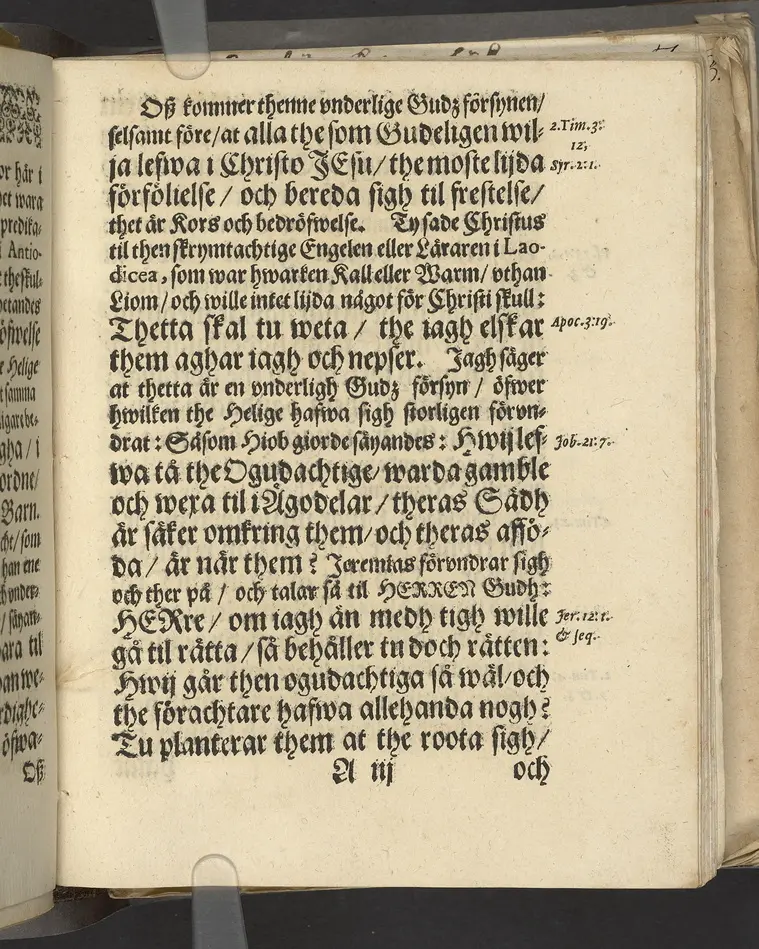 Oß kommer thenne vnderlige Gudz försynen/
selsamt före/at alla the som Gudeligen wil-
ja lefwa i Christo JEsu/ the moste lijda
förföltelse / och bereda sigh til frestelse/
thet är Kors och bedröfwelse. Ty sade Christus
til then skrymtachtige Engelen eller Läraren i Lao-
dicea, som war hwarken Kall eller Warm/ vthan
Liom/ och wille intet lijda något för Christi skull:
Thetta skal tu weta / the iagh elskar
them aghar iagh och nepser. Jagh säger
at thetta är en vnderligh Gudz försyn / öfwer
hwilken the Helige hafwa sigh storligen förvn-
drat: Såsom Hiob giorde säyandes: Hwij lef-
wa tå the Ogudachtige/ warda gamble
och wexa til i Ägodelar / theras Sädh
är säker omkring them/ och theras affö-
da / är när them? Jeremias förvndrar sigh
och ther på / och talar så til HERREN Gudh:
HERre/ om iagh än medh tigh wille
gå til rätta / så behåller tu doch rätten:
Hwij går then ogudachtiga så wäl/ och
the förachtare hafwa allehanda nogh?
Tu planterar them at the roota sigh/
A iij och
2. Tim. 3:
12.
Syr. 2: 1.
Apoc. 3: 19.
Job. 21: 7.
Jer. 12: 1.
& seq.
or här i
et wara
predika-
i Antio-
the skul-
betandes
öfwelse
Helige
samma
gha / i
ordne/
Barn.
cht/ som
han ene
/ säyan-
ara til
an we-
rdighe-
öfwa-
Oß